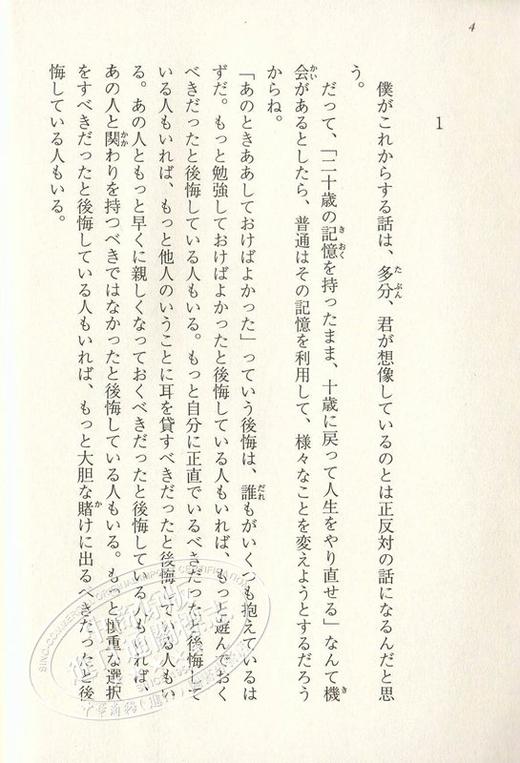 4
1
僕がこれからする話は、多分、君が想像しているのとは正反対の話になるんだと思
う。
だって、「二十歳の記憶を持ったまま、十歳に戻って人生をやり直せる」なんて機
会があるとしたら、普通はその記憶を利用して、様々なことを変えようとするだろう
からね。
「あのときああしておけばよかった」っていう後悔は、誰もがいくつも抱えているは
ずだ。もっと勉強しておけばよかったと後悔している人もいれば、もっと遊んでおく
べきだったと後悔している人もいる。もっと自分に正直でいるべきだったと後悔して
いる人もいれば、もっと他人のいうことに耳を貸すべきだったと後悔している人もい
る。あの人ともっと早くに親しくなっておくべきだったと後悔している人もいれば、
あの人と関わりを持つべきではなかったと後悔している人もいる。もっと慎重な選択
をすべきだったと後悔している人もいれば、もっと大胆な賭けに出るべきだったと後
悔している人もいる。